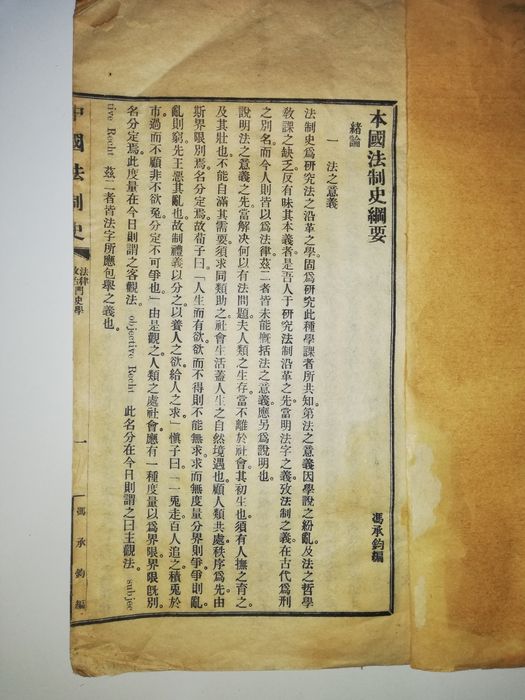 本國法制史綱要
馮承鈞編
緒論
一 法之意義
法制史爲研究法之沿革之學。固爲研究此種學課者所共知。第法之意義因學說之紛亂及法之哲學
敎課之缺乏。反有昧其本義者。是吾人于研究法制沿革之先。當明法字之義。攷法制之義。在古代爲刑
之別名。而今人則皆以爲法律。茲二者皆未能槪括法之意義。應另爲說明也。
說明法之意義之先。當解决何以有法問題。夫人類之生存。當不離於社會。其初生也。須有人撫之育之。
及其壯也。不能自滿其需要。須求同類助之。社會生活蓋人生之自然境遇也。顧人類共處。秩序爲先。由
斯界限別焉。名分定焉。故荀子曰。「人生而有欲。欲而不得。則不能無求。求而無度量分界則爭。爭則亂。
亂則窮。先王惡其亂也。故制禮義以分之。以養人之欲。給人之求」愼子曰。「一兎走。百人追之。積兎於
市。過而不顧。非不欲兎。分定不可爭也」由是觀之。人類之處社會。應有一種度量以爲界限。界限旣別。
名分定焉。此度量在今日則謂之客觀法。objective Recht 此名分在今日則謂之曰主觀法。subjec
tive Recht 茲二者皆法字所應包舉之義也。
中國法制史
法律門
政治史學
一
馮承鈞編